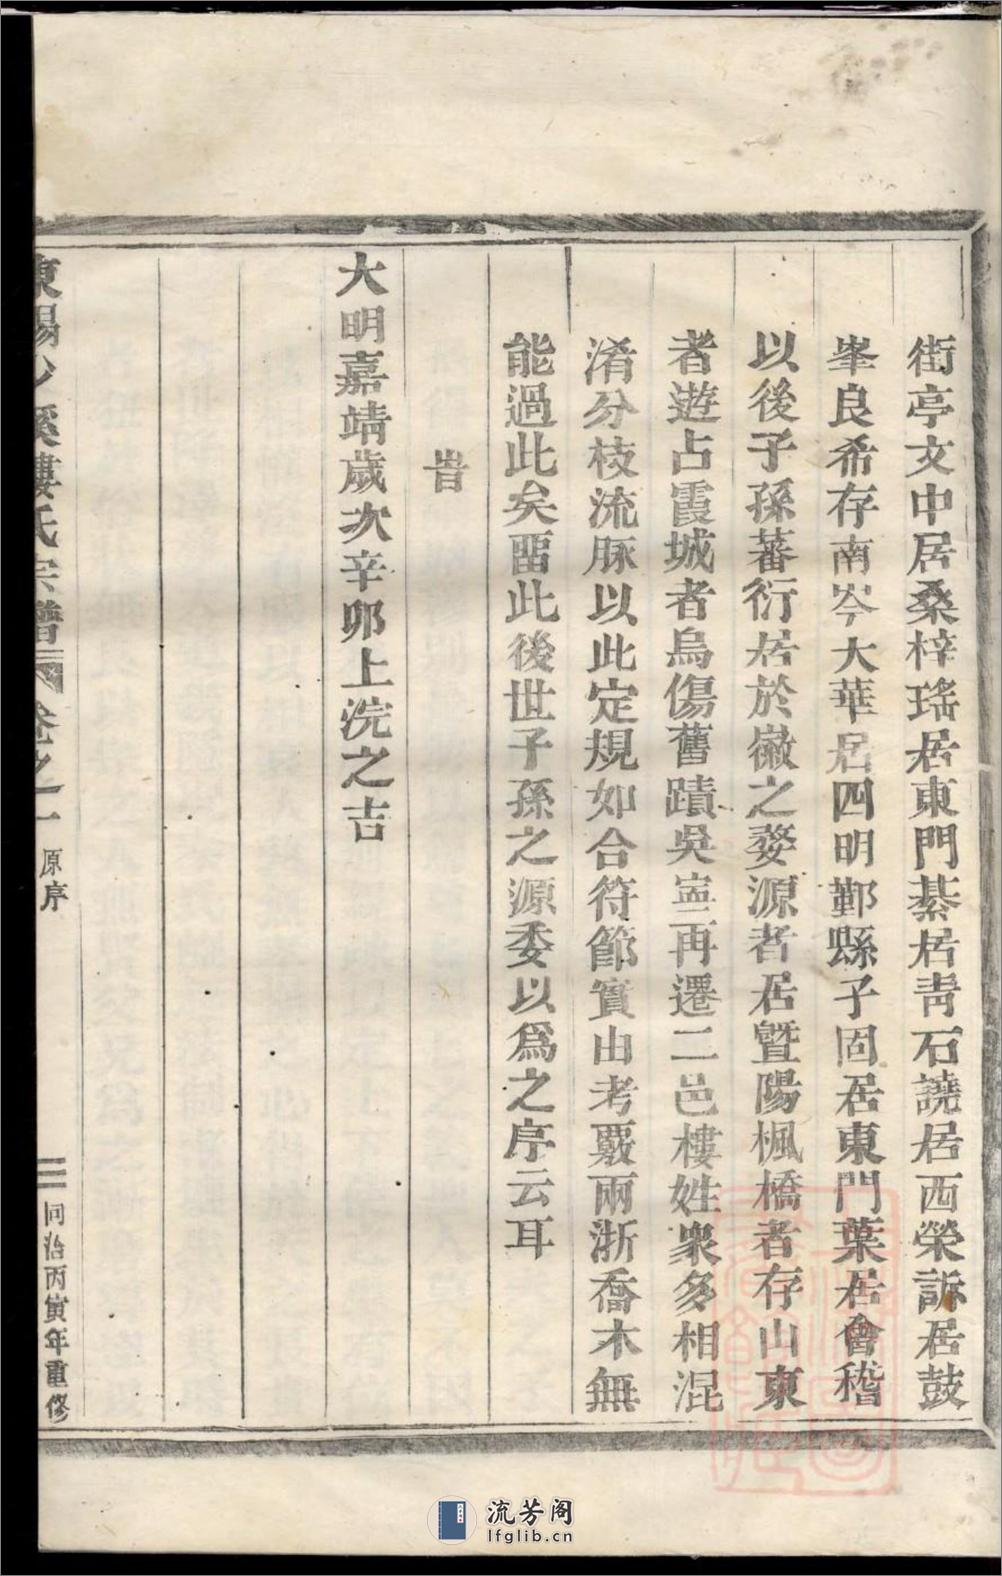 街亭文中居桑梓瑤居東門綦居靑石譊居西榮訴居鼓
峯良希存南岑大華居四明鄞縣子固居東門葉居會稽
以後子孫蕃衍居於徽之婺源者居曁陽楓橋者存山東
者遊占霞城者烏傷舊蹟吳寍再遷二邑樓姓衆多相混
淆分枝流脈以此定規如合符節實由考覈兩浙喬木無
能過此矣畱此後世子孫之源委以爲之序云耳
旹
大明嘉靖歲次辛卯上浣之吉
東陽少溪樓氏宗譜 卷之一 原序 二 同治丙寅年重修
流芳阁
lfglib.cn